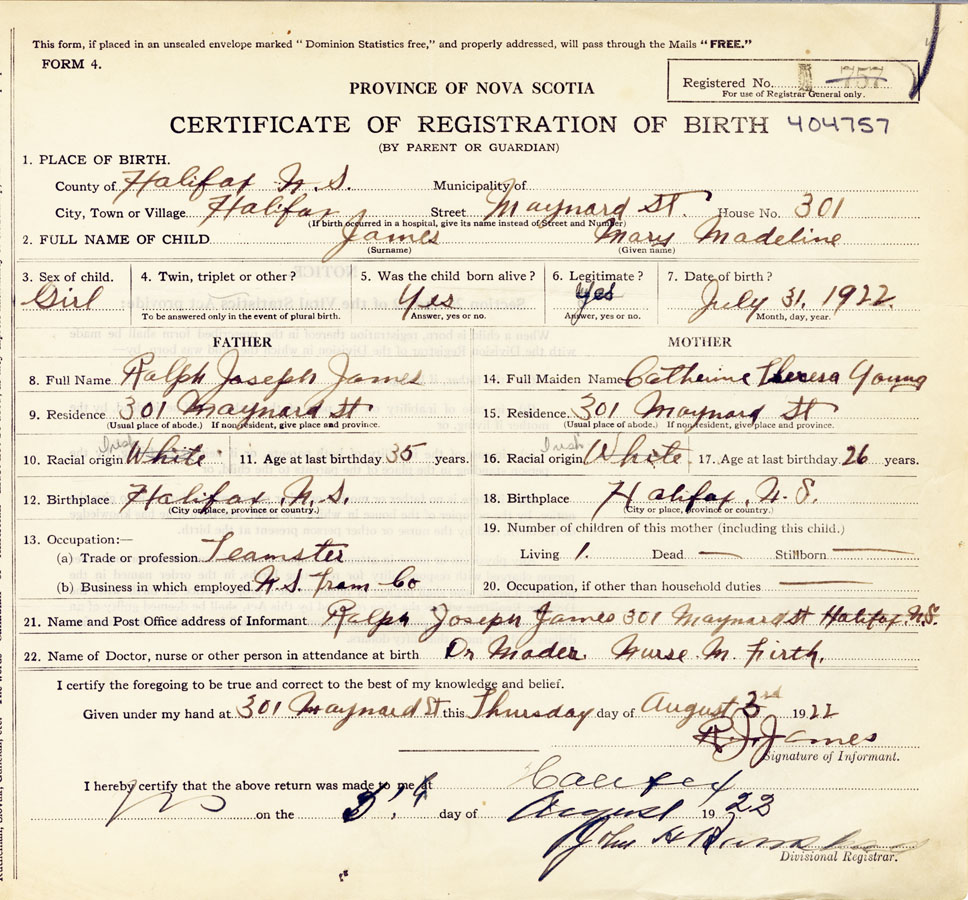 This form, if placed in an unsealed envelope marked "Dominion Statistics free," and properly addressed, will pass through the Mails "FREE."
FORM 4.
Registered No. 757
For use of Registrar General only.
PROVINCE OF NOVA SCOTIA
CERTIFICATE OF REGISTRATION OF BIRTH 404757
(BY PARENT OR GUARDIAN)
1. PLACE OF BIRTH.
County of Halifax N.S. Municipality of
City, Town or Village Halifax Street Maynard St. House No. 301
(If birth occurred in a hospital, give its name instead of Street and Number)
2. FULL NAME OF CHILD James Mary Madeline
(Surname) (Given name)
3. Sex of child. 4. Twin, triplet or other? 5. Was the child born alive? 6. Legitimate? 7. Date of birth?
Girl Yes yes July 31, 1922.
To be answered only in the event of plural birth. Answer, yes or no. Answer, yes or no. Month, day, year.
FATHER MOTHER
8. Full Name Ralph Joseph James 14. Full Maiden Name Catherine Theresa Young
9. Residence 301 Maynard St 15. Residence. 301 Maynard St
(Usual place of abode.) If non resident, give place and province. (Usual place of abode.) If non resident, give place and province.
Irish Irish
10. Racial origin White 11. Age at last birthday 35 years. 16. Racial origin White 17. Age at last birthday 26 years.
12. Birthplace Halifax, N.S. 18. Birthplace Halifax, N.S.
(City or place, province or country.) (City or place, province or country.)
13. Occupation:— 19. Number of children of this mother (including this child.)
(a) Trade or profession Teamster Living 1. Dead — Stillborn —
(b) Business in which employed N.S. Tram Co 20. Occupation, if other than household duties —
21. Name and Post Office address of Informant Ralph Joseph James 301 Maynard St Halifax N.S.
22. Name of Doctor, nurse or other person in attendance at birth Dr Mader. Nurse M. Firth.
I certify the foregoing to be true and correct to the best of my knowledge and belief.
Given under my hand at 301 Maynard St this Thursday day of August 3rd 1922
R. J. James
Signature of Informant.
I hereby certify that the above return was made to me at Halifax
on the day of August 19 22
John H
Divisional Registrar.